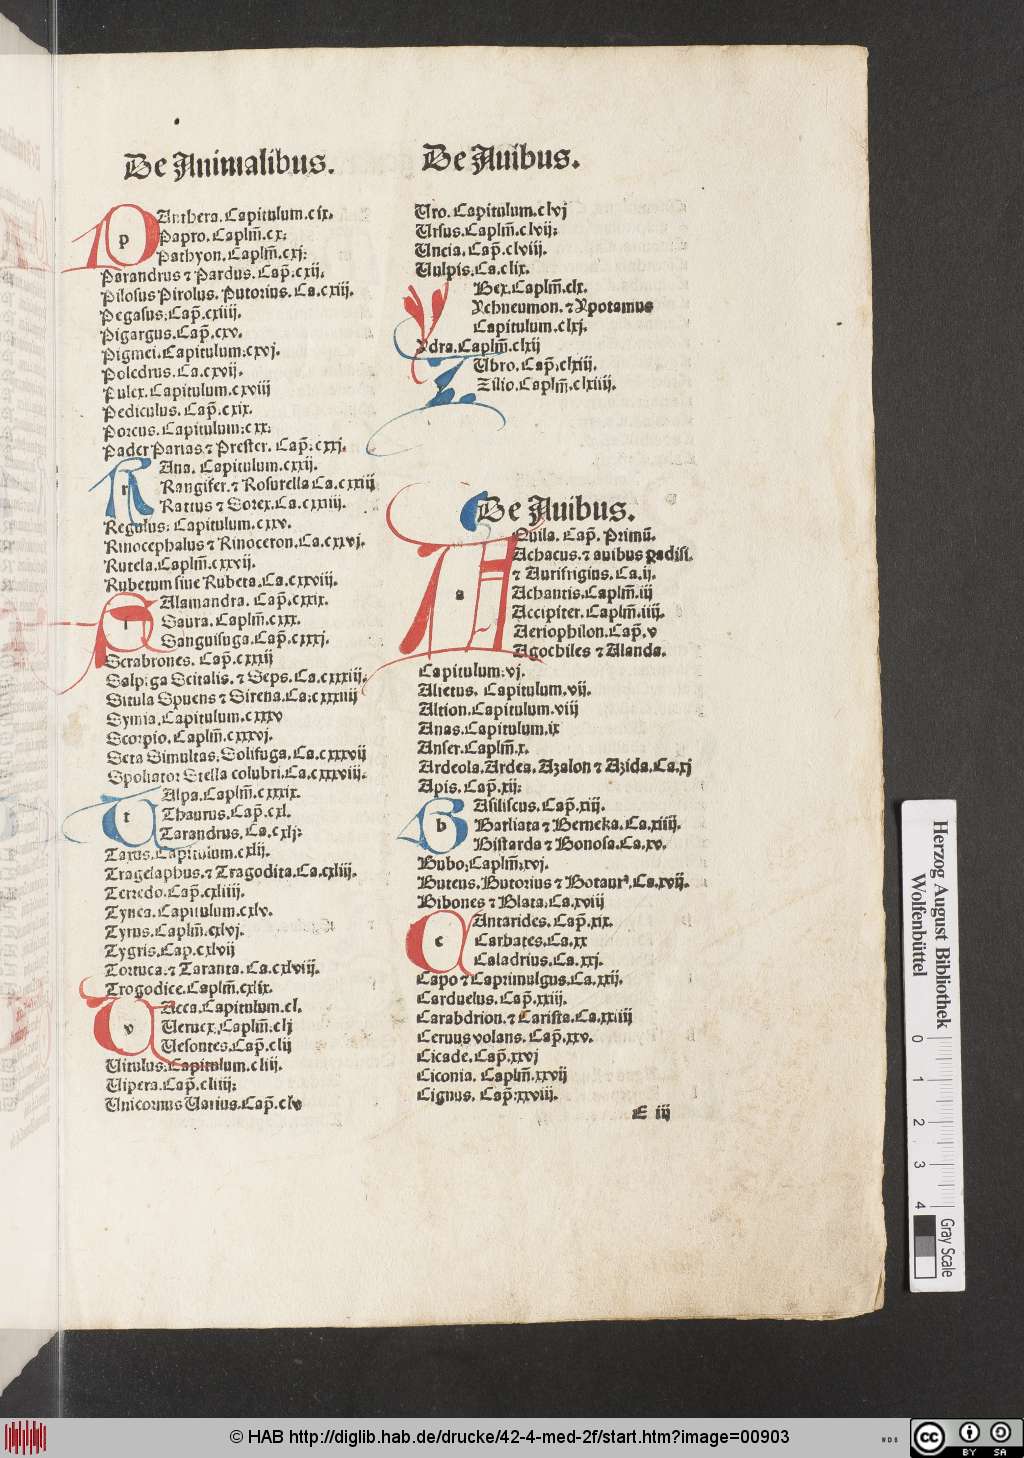 De Animalibus.
PAnthera. Capitulum.cix.
Papro. Caplm̄.cx:
Pathyon. Caplm̄.cxj:
Parandrus ⁊ Pardus. Cap̄.cxij.
Pilosus Pirolus. Putorius. Ca.cxiij.
Pegasus. Cap̄.cxiiij.
Pigargus. Cap̄.cxv.
Pigmei. Capitulum.cxvj.
Poledrus. Ca.cxvij.
Pulex. Capitulum.cxviij
Pediculus. Cap̄.cxix.
Porcus. Capitulum:cxx:
Pader Parias ⁊ Prester. Cap̄:cxxj.
RAna. Capitulum.cxxij.
Rangifer. ⁊ Rosurella Ca.cxxiij
Rattus ⁊ Sorex. Ca.cxxiiij.
Regulus: Capitulum.cxxv.
Rinocephalus ⁊ Rinoceron. Ca.cxxvj.
Rutela. Caplm̄.cxxvij.
Rubetum siue Rubeta. Ca.cxxviij.
SAlamandra. Cap̄.cxxix.
Saura. Caplm̄.cxxx.
Sanguisuga. Cap̄.cxxxj.
Scrabrones. Cap̄.cxxxij
Salpiga Scitalis. ⁊ Seps. Ca.cxxxiij.
Situla Spuens ⁊ Sirena. Ca:cxxxiiij
Symia. Capitulum.cxxxv
Scorpio. Caplm̄.cxxxvj.
Seta Simultas. Solifuga. Ca.cxxxvij
Spoliator Stella colubri. Ca.cxxxviij.
TAlpa. Caplm̄.cxxxix.
Thaurus. Cap̄.cxl.
Tarandrus. Ca.cxlj:
Taxus. Capitulum.cxlij.
Tragelaphus. ⁊ Tragodita. Ca.cxliij.
Terredo. Cap̄.cxliiij.
Tynea. Capitulum.cxlv.
Tyrus. Caplm̄.cxlvj.
Tygris. Cap.cxlvij
Tortuca. ⁊ Taranta. Ca.cxlviij.
Trogodice. Caplm̄.cxlix.
VAcca. Capitulum.cl.
Verucx. Caplm̄.clj
Vesontes. Cap̄.clij
Vitulus. Capitulum.cliij.
Vipera. Cap̄.cliiij:
Vnicornus Varius. Cap̄.clv
De Auibus.
Vro. Capitulum.clvj
Vrsus. Caplm̄.clvij:
Vncia. Cap̄.clviij.
Vulpis. Ca.clix.
YBex. Caplm̄.clx.
Ychneumon. ⁊ Ypotamus
Capitulum.clxj.
Ydra. Caplm̄.clxij
ZVbro. Cap̄.clxiij.
Zilio. Caplm̄.clxiiij.
De Auibus.
AQuila. Cap̄. Primū.
Achacus. ⁊ auibus padisi.
⁊ Aurifrigius. Ca.ij.
Achantis. Caplm̄.iij
Accipiter. Caplm̄.iiij.
Aeriophilon. Cap̄.v
Agochiles ⁊ Alanda.
Capitulum.vj.
Alietus. Capitulum.vij.
Altion. Capitulum.viij
Anas. Capitulum.ix
Anser. Caplm̄.x.
Ardeola. Ardea. Azalon ⁊ Azida. Ca.xj
Apis. Cap̄.xij:
BAsiliscus. Cap̄.xiij.
Barliata ⁊ Berneka. Ca.xiiij.
Bistarda ⁊ Bonosa. Ca.xv.
Bubo. Caplm̄.xvj.
Buteus. Butorius ⁊ Botaurꝰ. Ca.xvij.
Bibones ⁊ Blata. Ca.xviij
CAntarides. Cap̄.xix.
Carbates. Ca.xx
Caladrius. Ca.xxj.
Capo ⁊ Caprimulgus. Ca.xxij.
Carduelus. Cap̄.xxiij.
Carabdrion. ⁊ Carista. Ca.xxiiij
Ceruus volans. Cap̄.xxv.
Cicade. Cap̄.xxvj
Ciconia. Caplm̄.xxvij
Cignus. Cap̄:xxviij.
E iij
Herzog August Bibliothek
Wolfenbüttel
0 1 2 3 4
Gray Scale
© HAB http://diglib.hab.de/drucke/42-4-med-2f/start.htm?image=00903
WDB
cc BY SA